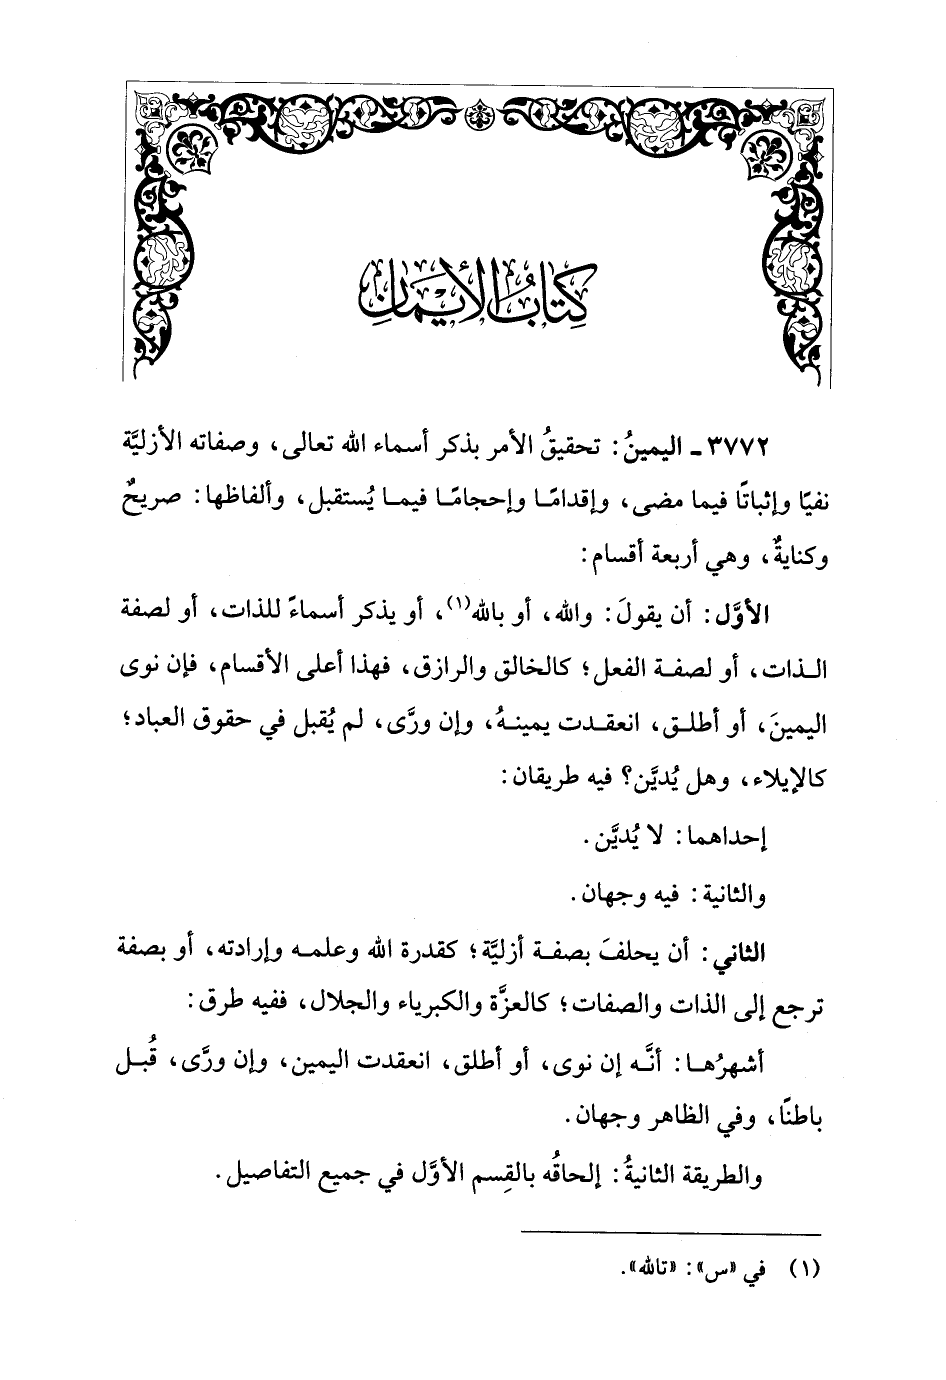 كِتَابُ الأَيْمَانِ
٣٧٧٢ ـ اليمينُ: تحقيقُ الأمر بذكر أسماء الله تعالى، وصفاته الأزليَّة
نفيًا وإثباتًا فيما مضى، وإقدامًا وإحجامًا فيما يُستقبل، وألفاظها: صريحٌ
وكنايةٌ، وهي أربعة أقسام:
الأوَّل: أن يقولَ: والله، أو بالله(١)، أو يذكر أسماءً للذات، أو لصفة
الذات، أو لصفة الفعل؛ كالخالق والرازق، فهذا أعلى الأقسام، فإن نوى
اليمينَ، أو أطلق، انعقدت يمينهُ، وإن ورَّى، لم يُقبل في حقوق العباد؛
كالإيلاء، وهل يُديَّن؟ فيه طريقان:
إحداهما: لا يُديَّن.
والثانية: فيه وجهان.
الثاني: أن يحلفَ بصفة أزليَّة؛ كقدرة الله وعلمه وإرادته، أو بصفة
ترجع إلى الذات والصفات؛ كالعزَّة والكبرياء والجلال، ففيه طرق:
أشهرُها: أنَّه إن نوى، أو أطلق، انعقدت اليمين، وإن ورَّى، قُبل
باطنًا، وفي الظاهر وجهان.
والطريقة الثانيةُ: إلحاقُه بالقِسم الأوَّل في جميع التفاصيل.
(١) في «س»: «تالله».